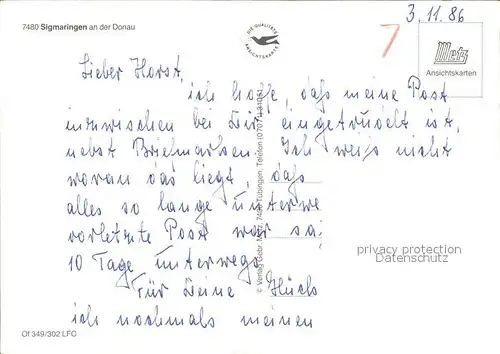 7480 Sigmaringen an der Donau
3.11.86
7
DIE QUALITÄTS ANSICHTSKARTE
Metz
Ansichtskarten
Lieber Horst,
ich hoffe, daß meine Post
inzwischen bei Dir eingetrudelt ist,
nebst Briefmarken. Ich weiß nicht
woran das liegt, daß
alles so lange unterwe
vorletzte Post war sa
10 Tage unterwegs
Für Deine Glück
ich nochmals meinen
© Verlag Gebr. Metz, 7400 Tübingen, Telefon (07071)
privacy protection
Datenschutz
Of 349/302 LFC